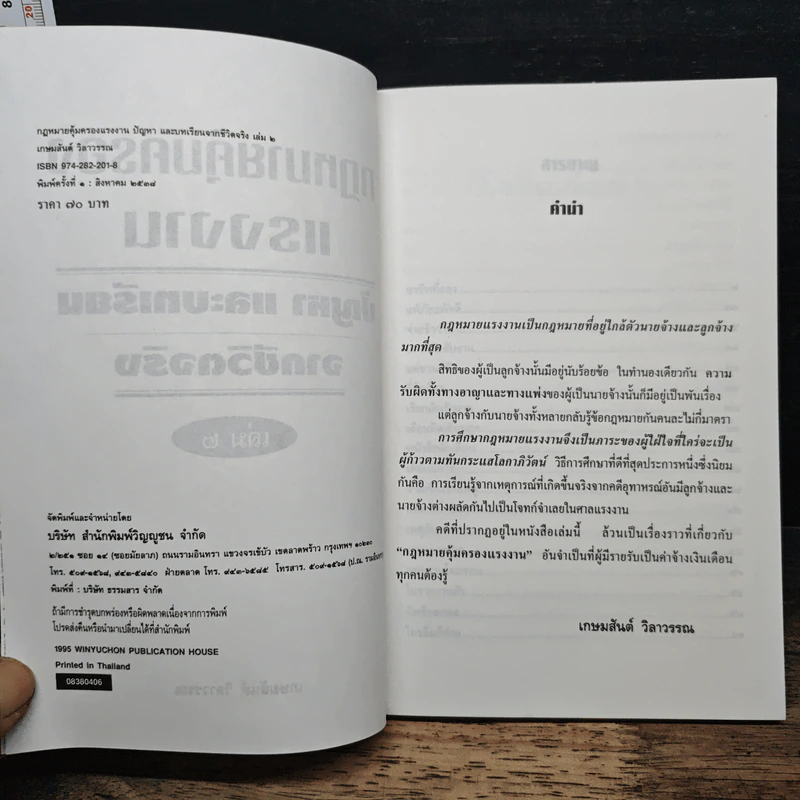 กฎหมายคุ้มครองแรงงาน ปัญหา และบทเรียนจากชีวิตจริง เล่ม ๒
เกษมสันต์ วิลาวรรณ
ISBN 974-282-201-8
พิมพ์ครั้งที่ ๑ : สิงหาคม ๒๕๓๘
ราคา ๗๐ บาท
จัดพิมพ์และจำหน่ายโดย
บริษัท สำนักพิมพ์วิญญูชน จำกัด
๒/๒๕๑ ซอย ๑๔ (ซอยมัยลาภ) ถนนรามอินทรา แขวงจรเข้บัว เขตลาดพร้าว กรุงเทพฯ ๑๐๒๓๐
โทร. ๕๐๙-๑๕๖๘, ๙๔๓-๕๘๔๐ ฝ่ายตลาด โทร. ๙๔๓-๖๕๘๕ โทรสาร. ๕๐๙-๑๕๖๘ (ป.ณ. รามอินทรา)
พิมพ์ที่ : บริษัท ธรรมสาร จำกัด
ถ้ามีการชำรุดบกพร่องหรือผิดพลาดเนื่องจากการพิมพ์
โปรดส่งคืนหรือนำมาเปลี่ยนได้ที่สำนักพิมพ์
1995 WINYUCHON PUBLICATION HOUSE
Printed in Thailand
08380406
คำนำ
กฎหมายแรงงานเป็นกฎหมายที่อยู่ใกล้ตัวนายจ้างและลูกจ้าง
มากที่สุด
สิทธิของผู้เป็นลูกจ้างนั้นมีอยู่นับร้อยข้อ ในทำนองเดียวกัน ความ
รับผิดทั้งทางอาญาและทางแพ่งของผู้เป็นนายจ้างนั้นก็มีอยู่เป็นพันเรื่อง
แต่ลูกจ้างกับนายจ้างทั้งหลายกลับรู้ข้อกฎหมายกันคนละไม่กี่มาตรา
การศึกษากฎหมายแรงงานจึงเป็นภาระของผู้ใฝ่ใจที่ใคร่จะเป็น
ผู้ก้าวตามทันกระแสโลกาภิวัตน์ วิธีการศึกษาที่ดีที่สุดประการหนึ่งซึ่งนิยม
กันคือ การเรียนรู้จากเหตุการณ์ที่เกิดขึ้นจริงจากคดีอุทาหรณ์อันมีลูกจ้างและ
นายจ้างต่างผลัดกันไปเป็นโจทก์จำเลยในศาลแรงงาน
คดีที่ปรากฏอยู่ในหนังสือเล่มนี้ ล้วนเป็นเรื่องราวที่เกี่ยวกับ
“กฎหมายคุ้มครองแรงงาน” อันจำเป็นที่ผู้มีรายรับเป็นค่าจ้างเงินเดือน
ทุกคนต้องรู้
เกษมสันต์ วิลาวรรณ